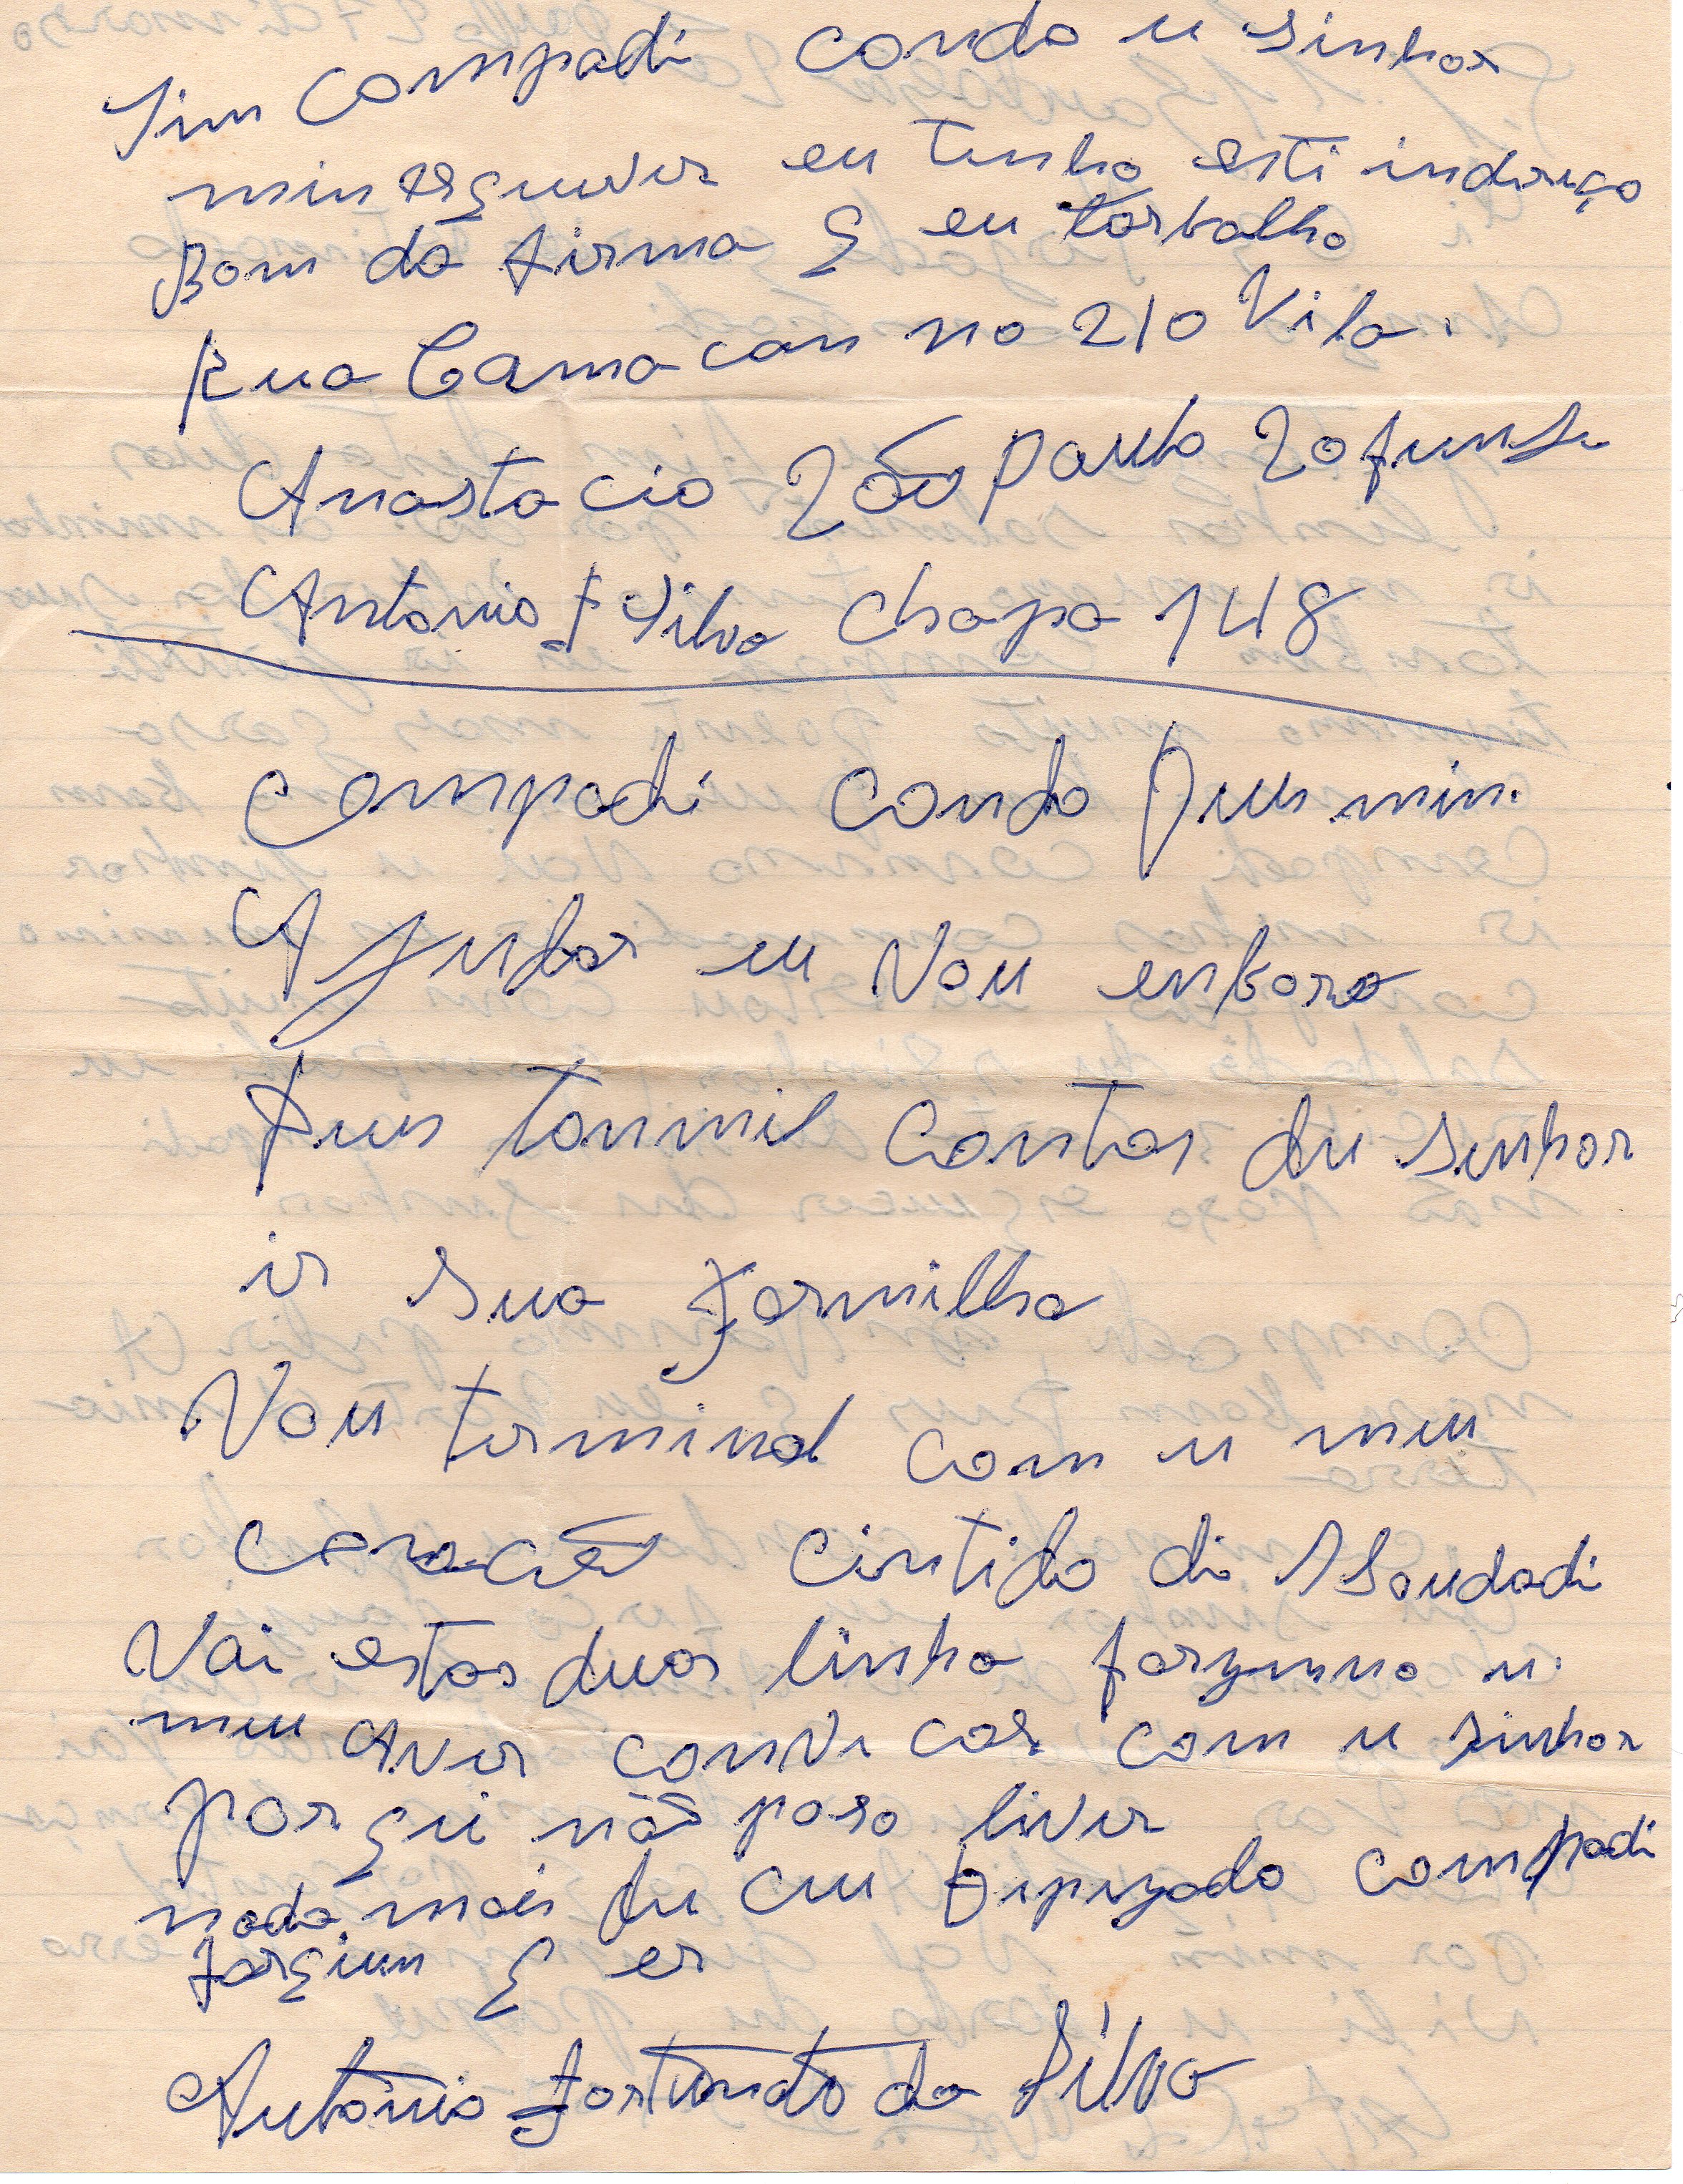 Sim Compadi condo u sinhor
min esquever eu tinho esti indereço
Bom da firma q eu torbalho
Rua Camacan no 210 Vila.
Anastacio São paulo 20
Antonio F Silva chapa 148
compadi condo Deus min.
Ajudar eu Vou enbora
Deus tommil Contas du senhor
is sua Formilha
Vou terminal com u meu
coracão cintido di Saudadi
Vai estas duas linha fazenno u
meu aver conver cas com u sinhor
porqui não poso liver
nada mais du cu compadi
q es
Antonio Fortunato da Silva